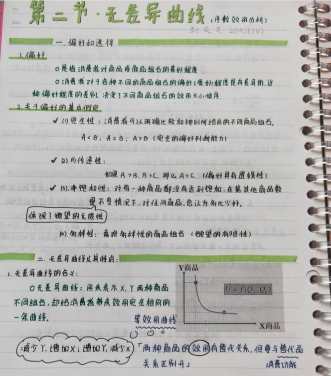 第二节·无差异曲线(序数效用论)
一、偏好和选择
1.偏好
①是指消费者对商品或商品组合的喜好程度
②消费者对于各种不同的商品组合的偏好(喜好)程度是有差别的,这
种偏好程度的差别,决定了不同商品组合的效用大小顺序
2.关于偏好的基本假定
✓(1)完全性:消费者可以明确比较和排列任何给出的不同商品组合,
A<B;A=B;A>B(完全的偏好判断能力)
✓(2)可传递性:
如果A>B,B>C,那么A>C.(偏好具有逻辑性)
✓(3)非饱和性:对每一种商品都没有达到饱和,在其他商品数
量不变情况下,对任何商品,总认为多比少好。
体现了欲望的无限性
二、无差异曲线及其特点:
1.无差异曲线的含义:
Y商品
无差异曲线:用来表示X、Y两种商品
不同组合,却给消费者带来效用完全相同的
一条曲线。
X商品
等效用曲线
减少Y,增加X;增加Y,减少X
两种商品的效用有替代关系,但要与替代品
关系区别开